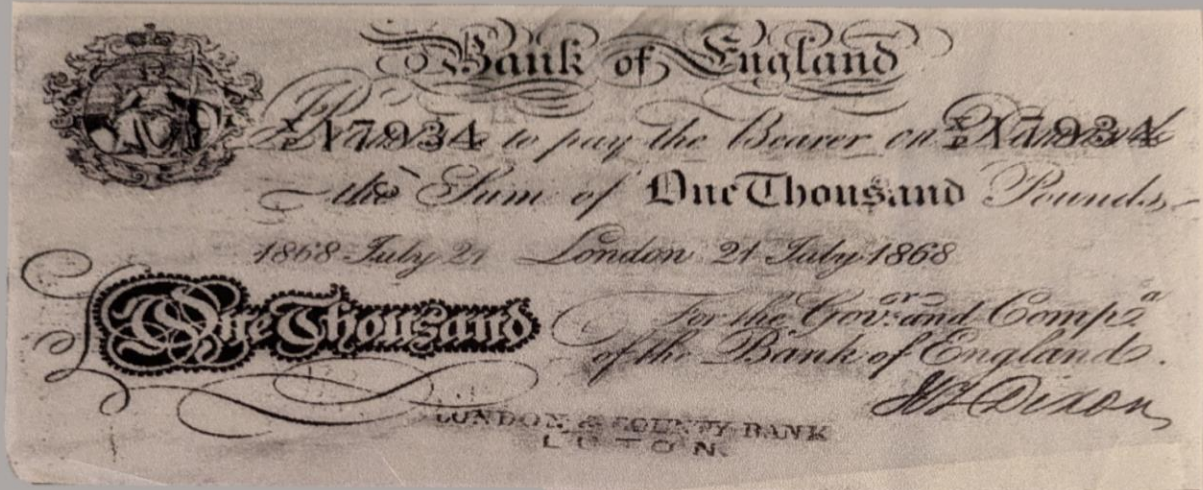 Bank of England
I Promise to pay the Bearer on Demand
17934 17934
the Sum of One Thousand Pounds
1868 July 21 London 21 July 1868
One Thousand
For the Gov.or and Comp.a
of the Bank of England.
Dixon
LONDON & COUNTY BANK
LUTON